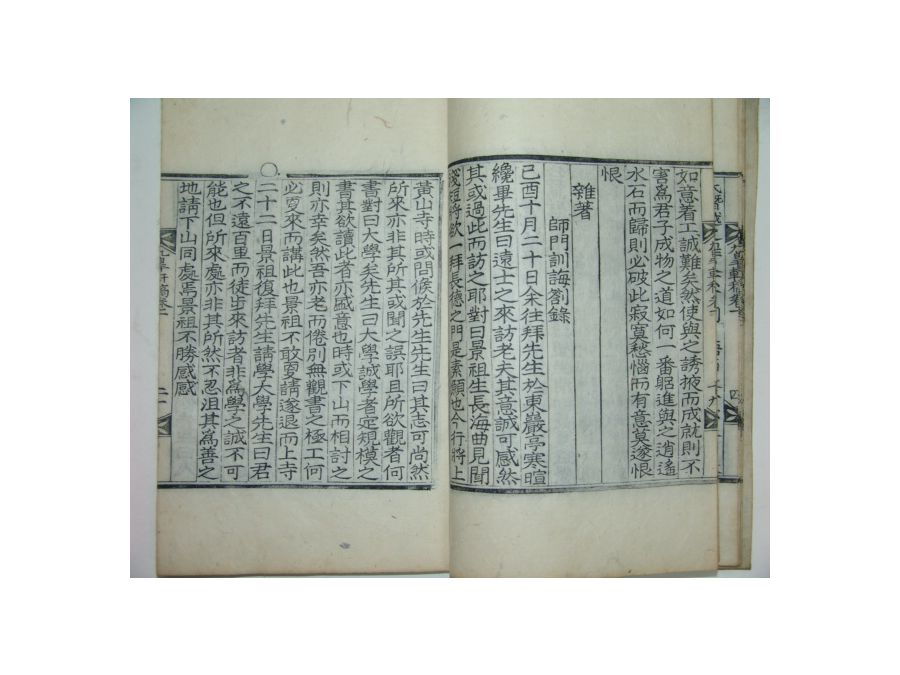 如意着工誠難矣然使與之誘掖而成就則不
害爲君子成物之道如何一番躬進與之逍遙
水石而歸則必破此寂寞愁惱而有意莫遂恨
恨
雜著
師門訓誨劄錄
己酉十月二十日余往拜先生於東巖亭寒暄
纔畢先生曰遠士之來訪老夫其意誠可感然
其或過此而訪之耶對曰景祖生長海曲見聞
淺短將欲一拜長德之門是素願也今行將上
黃山寺時或問候於先生先生曰其志可尚然
所來亦非其所其或聞之誤耶且所欲觀者何
書對曰大學矣先生曰大學誠學者定規模之
書其欲讀此者亦盛意也時或下山而相討之
則亦幸矣然吾亦老而倦別無觀書之極工何
必更來而講此也景祖不敢更請遂退而上寺
○二十二日景祖復拜先生請學大學先生曰君
之不遠百里而徒步來訪者非爲學之誠不可
能也但所來處亦非其所然不忍沮其爲善之
地請下山同處焉景祖不勝感感